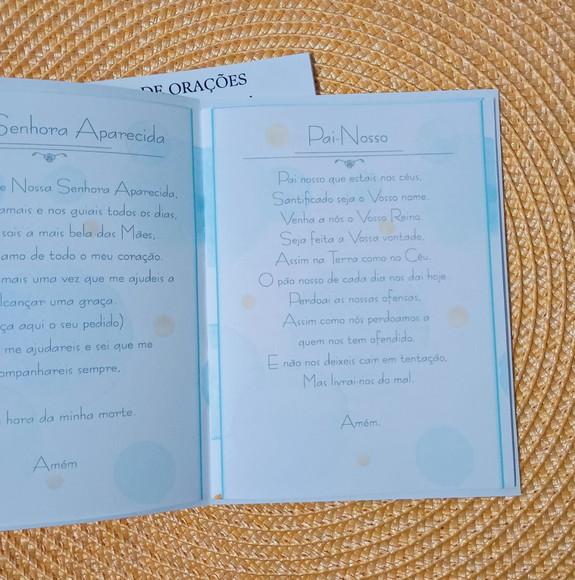 DE ORAÇÕES
Senhora Aparecida
Nossa Senhora Aparecida,
amais e nos guiais todos os dias,
sois a mais bela das Mães,
amo de todo o meu coração.
mais uma vez que me ajudeis a
alcançar uma graça.
aqui o seu pedido)
me ajudareis e sei que me
companhareis sempre,
hora da minha morte.
Amém
Pai-Nosso
Pai nosso que estais nos céus,
Santificado seja o Vosso nome.
Venha a nós o Vosso Reino.
Seja feita a Vossa vontade,
Assim na Terra como no Céu.
O pão nosso de cada dia nos dai hoje.
Perdoai as nossas ofensas,
Assim como nós perdoamos a
quem nos tem ofendido.
E não nos deixeis cair em tentação,
Mas livrai-nos do mal.
Amém.